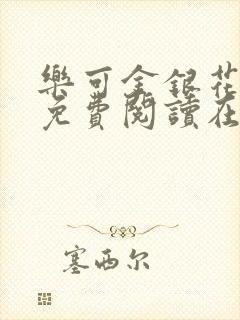 樂可金銀花
免費閱讀在
塞西尔